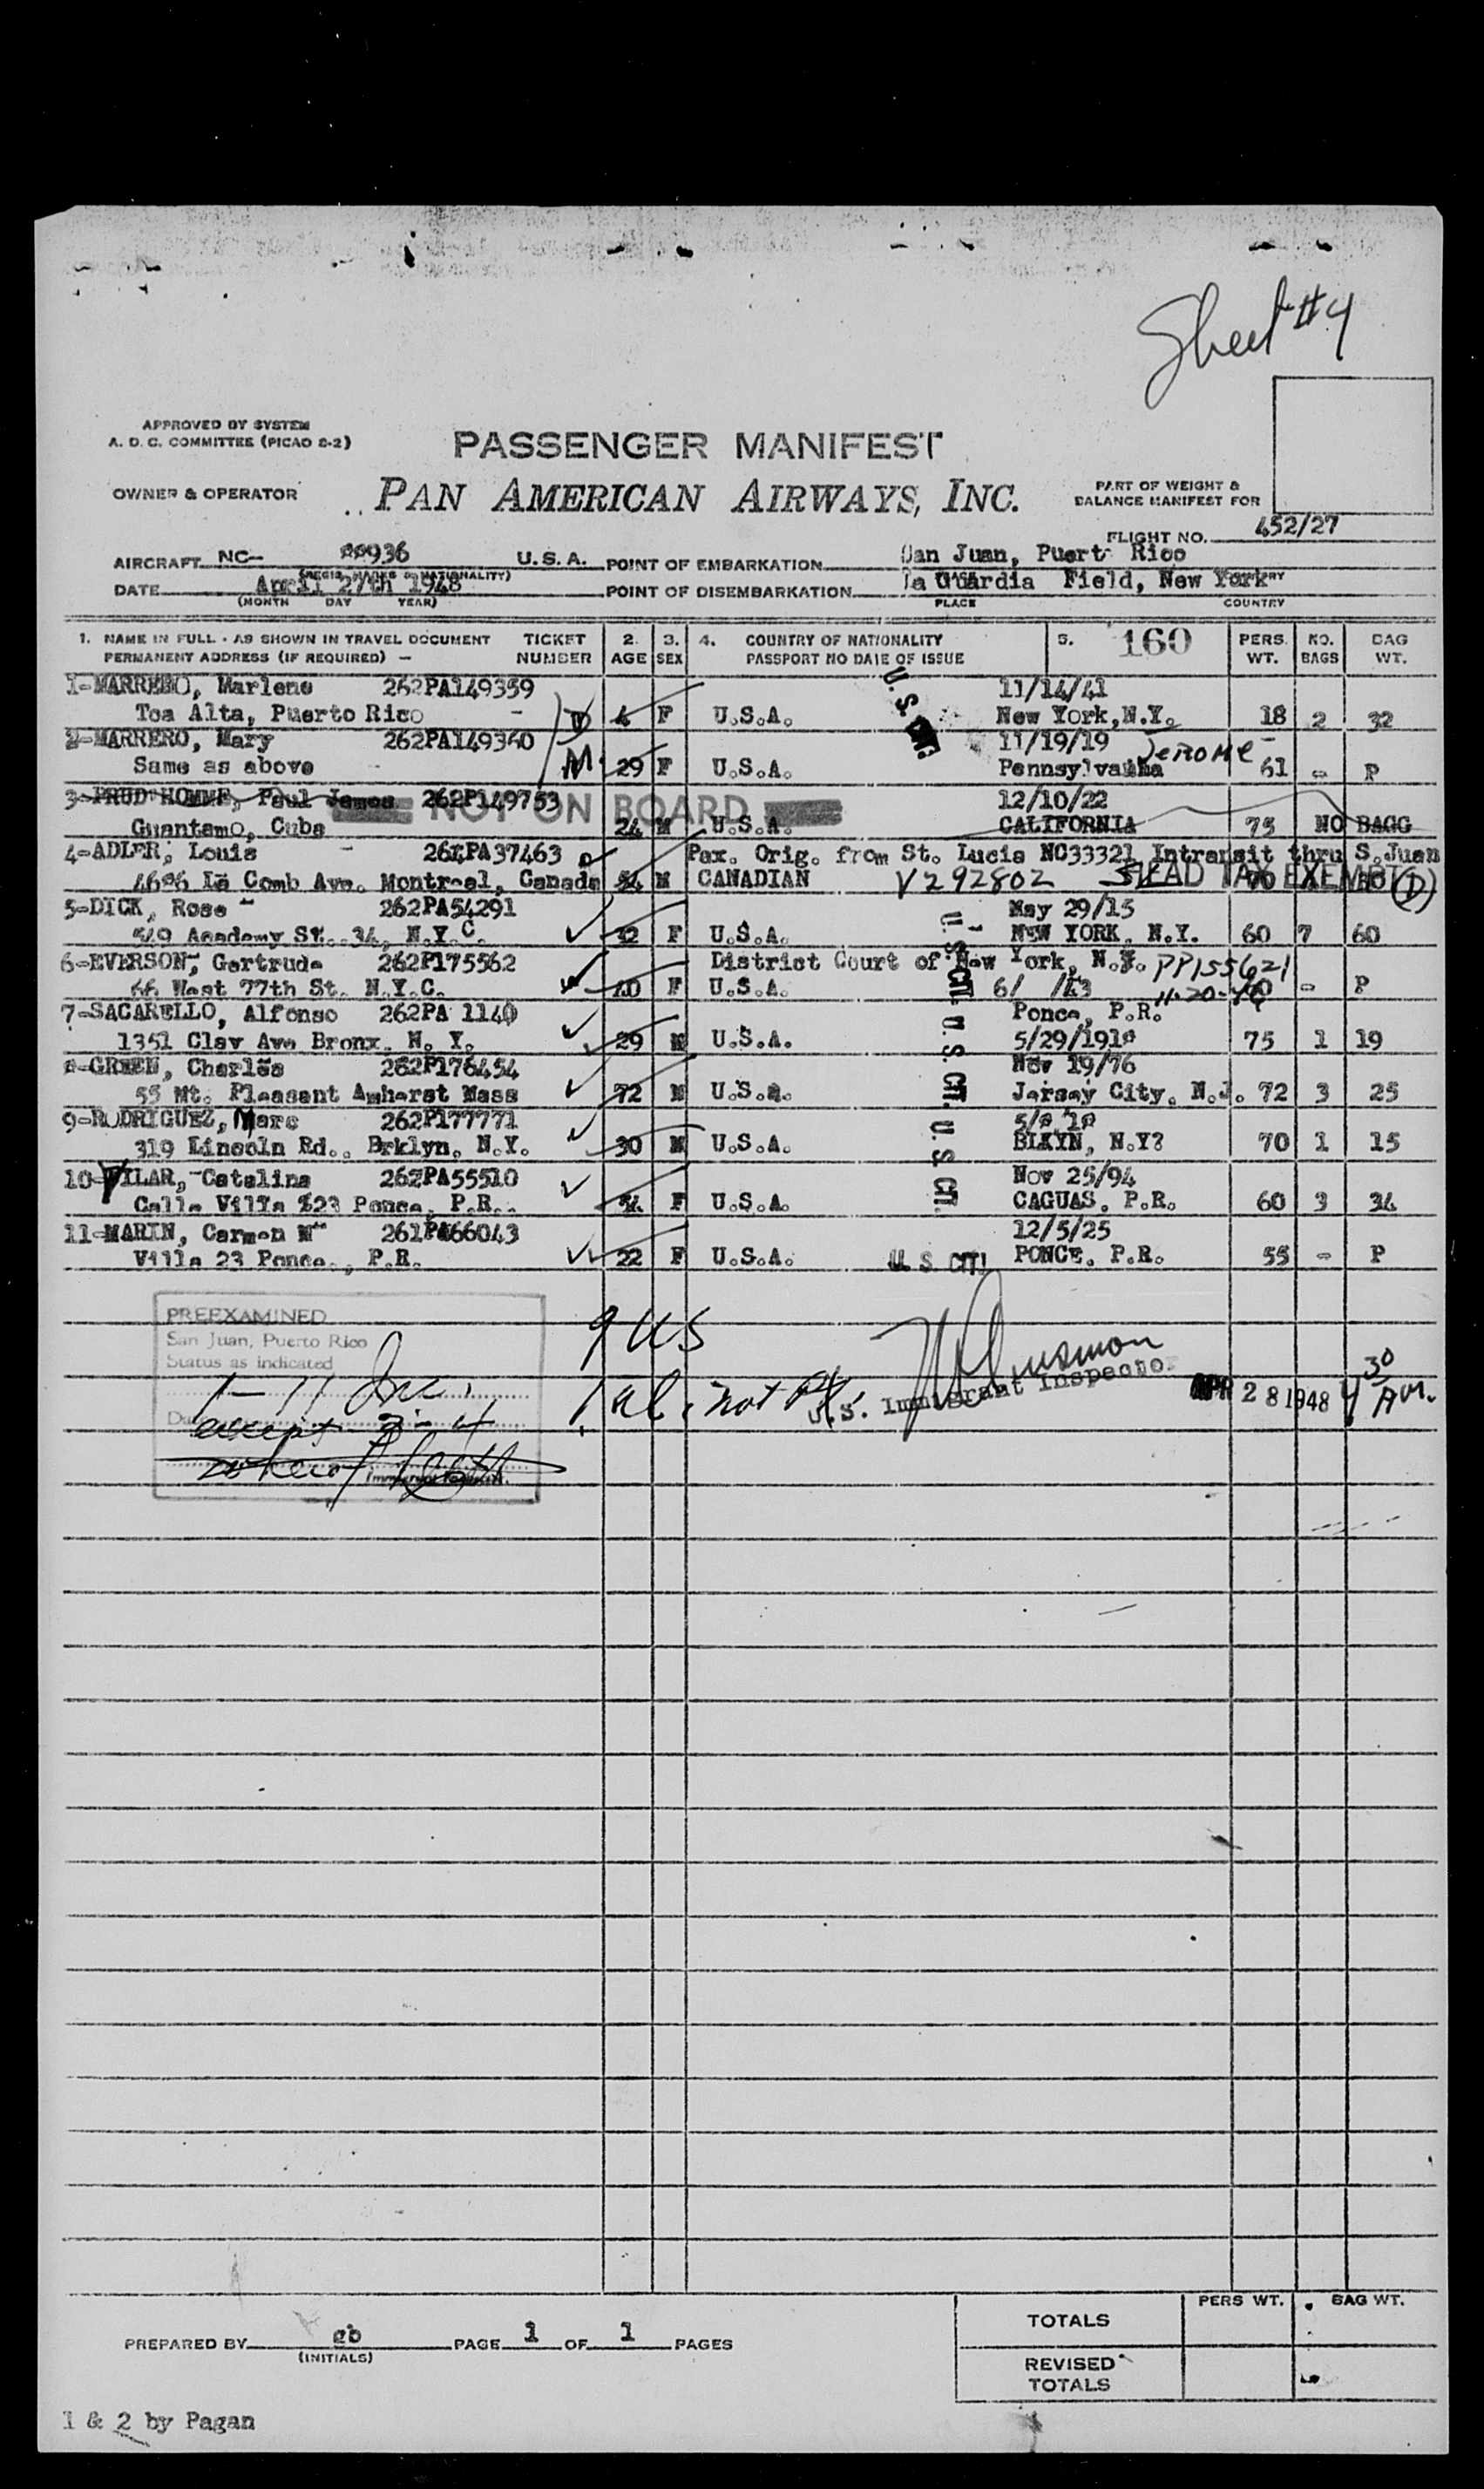 Sheet #4
APPROVED BY SYSTEM
A. D. C. COMMITTEE (PICAO S-2)
PASSENGER MANIFEST
OWNER & OPERATOR
PAN AMERICAN AIRWAYS, INC.
PART OF WEIGHT &
BALANCE MANIFEST FOR
FLIGHT NO. 452/27
AIRCRAFT NC- 936 U.S.A. POINT OF EMBARKATION San Juan, Puerto Rico
(REGIS. MARKS & NATIONALITY)
DATE April 27th 1948 POINT OF DISEMBARKATION La Guardia Field, New York
(MONTH DAY YEAR) PLACE COUNTRY
1. NAME IN FULL - AS SHOWN IN TRAVEL DOCUMENT TICKET 2. 3. 4. COUNTRY OF NATIONALITY 5. 160 PERS. NO. BAG
PERMANENT ADDRESS (IF REQUIRED) — NUMBER AGE SEX PASSPORT NO DATE OF ISSUE WT. BAGS WT.
1-MARRERO, Marlene 262PA149359 11/14/41
Toa Alta, Puerto Rico - F U.S.A. New York,N.Y. 18 2 32
2-MARRERO, Mary 262PA149360 11/19/19 Jerome
Same as above M. 29 F U.S.A. Pennsylvania 61 - P
3-PRUD'HOMME, Paul James 262P149753 NOT ON BOARD 12/10/22
Guantamo, Cuba 24 M U.S.A. CALIFORNIA 75 NO BAGG
4-ADLER, Louis - 261PA37463 Pax. Orig. from St. Lucia NC33321 Intransit thru S.Juan
La Comb Ave. Montreal, Canada 54 M CANADIAN V292802 HEAD TAX EXEMPT
5-DICK, Rose 262PA54291 May 29/15
549 Academy St. 34, N.Y.C. 32 F U.S.A. NEW YORK, N.Y. 60 7 60
6-EVERSON, Gertrude 262P175562 District Court of New York, N.Y. PP155621
66 West 77th St. N.Y.C. F U.S.A. 6/ /43 - P
7-SACARELLO, Alfonso 262PA 1140 Ponce, P.R.
1351 Clay Ave Bronx. N. Y. 29 M U.S.A. 75 1 19
8-GREEN, Charles 262P176454 Nov 19/76
55 Mt. Pleasant Amherst Mass 72 M U.S.A. Jersey City, N.J. 72 3 25
9-RODRIGUEZ, Marc 262P177771
319 Lincoln Rd., Brklyn, N.Y. 30 M U.S.A. BLKYN, N.Y? 70 1 15
10-VILAR, Catalina 262PA55510 Nov 25/94
Calle Villa 123 Ponce, P.R. F U.S.A. CAGUAS, P.R. 60 3 34
11-MARIN, Carmen M 261PA66043 12/5/25
Villa 23 Ponce., P.R. 22 F U.S.A. U. S. CIT. PONCE, P.R. 55 - P
PREEXAMINED
San Juan, Puerto Rico
Status as indicated
1-11 Inc.
except 3-4
9 US
U.S. Immigrant Inspector
APR 28 1948 4 30 AM.
TOTALS PERS WT. BAG WT.
PREPARED BY (INITIALS) PAGE 1 OF 1 PAGES
REVISED
TOTALS
1 & 2 by Pagan